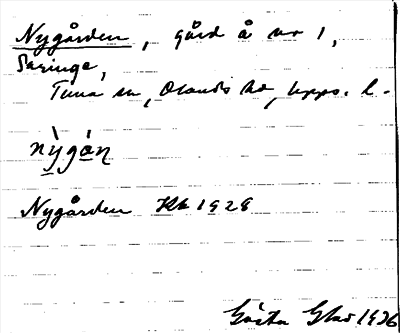 Nygården, gård å nr 1,
Saringe,
Tuna sn, Olands hd, Upps. l.
nỳgán
Nygården Kbr 1929
Gösta Glas 1936